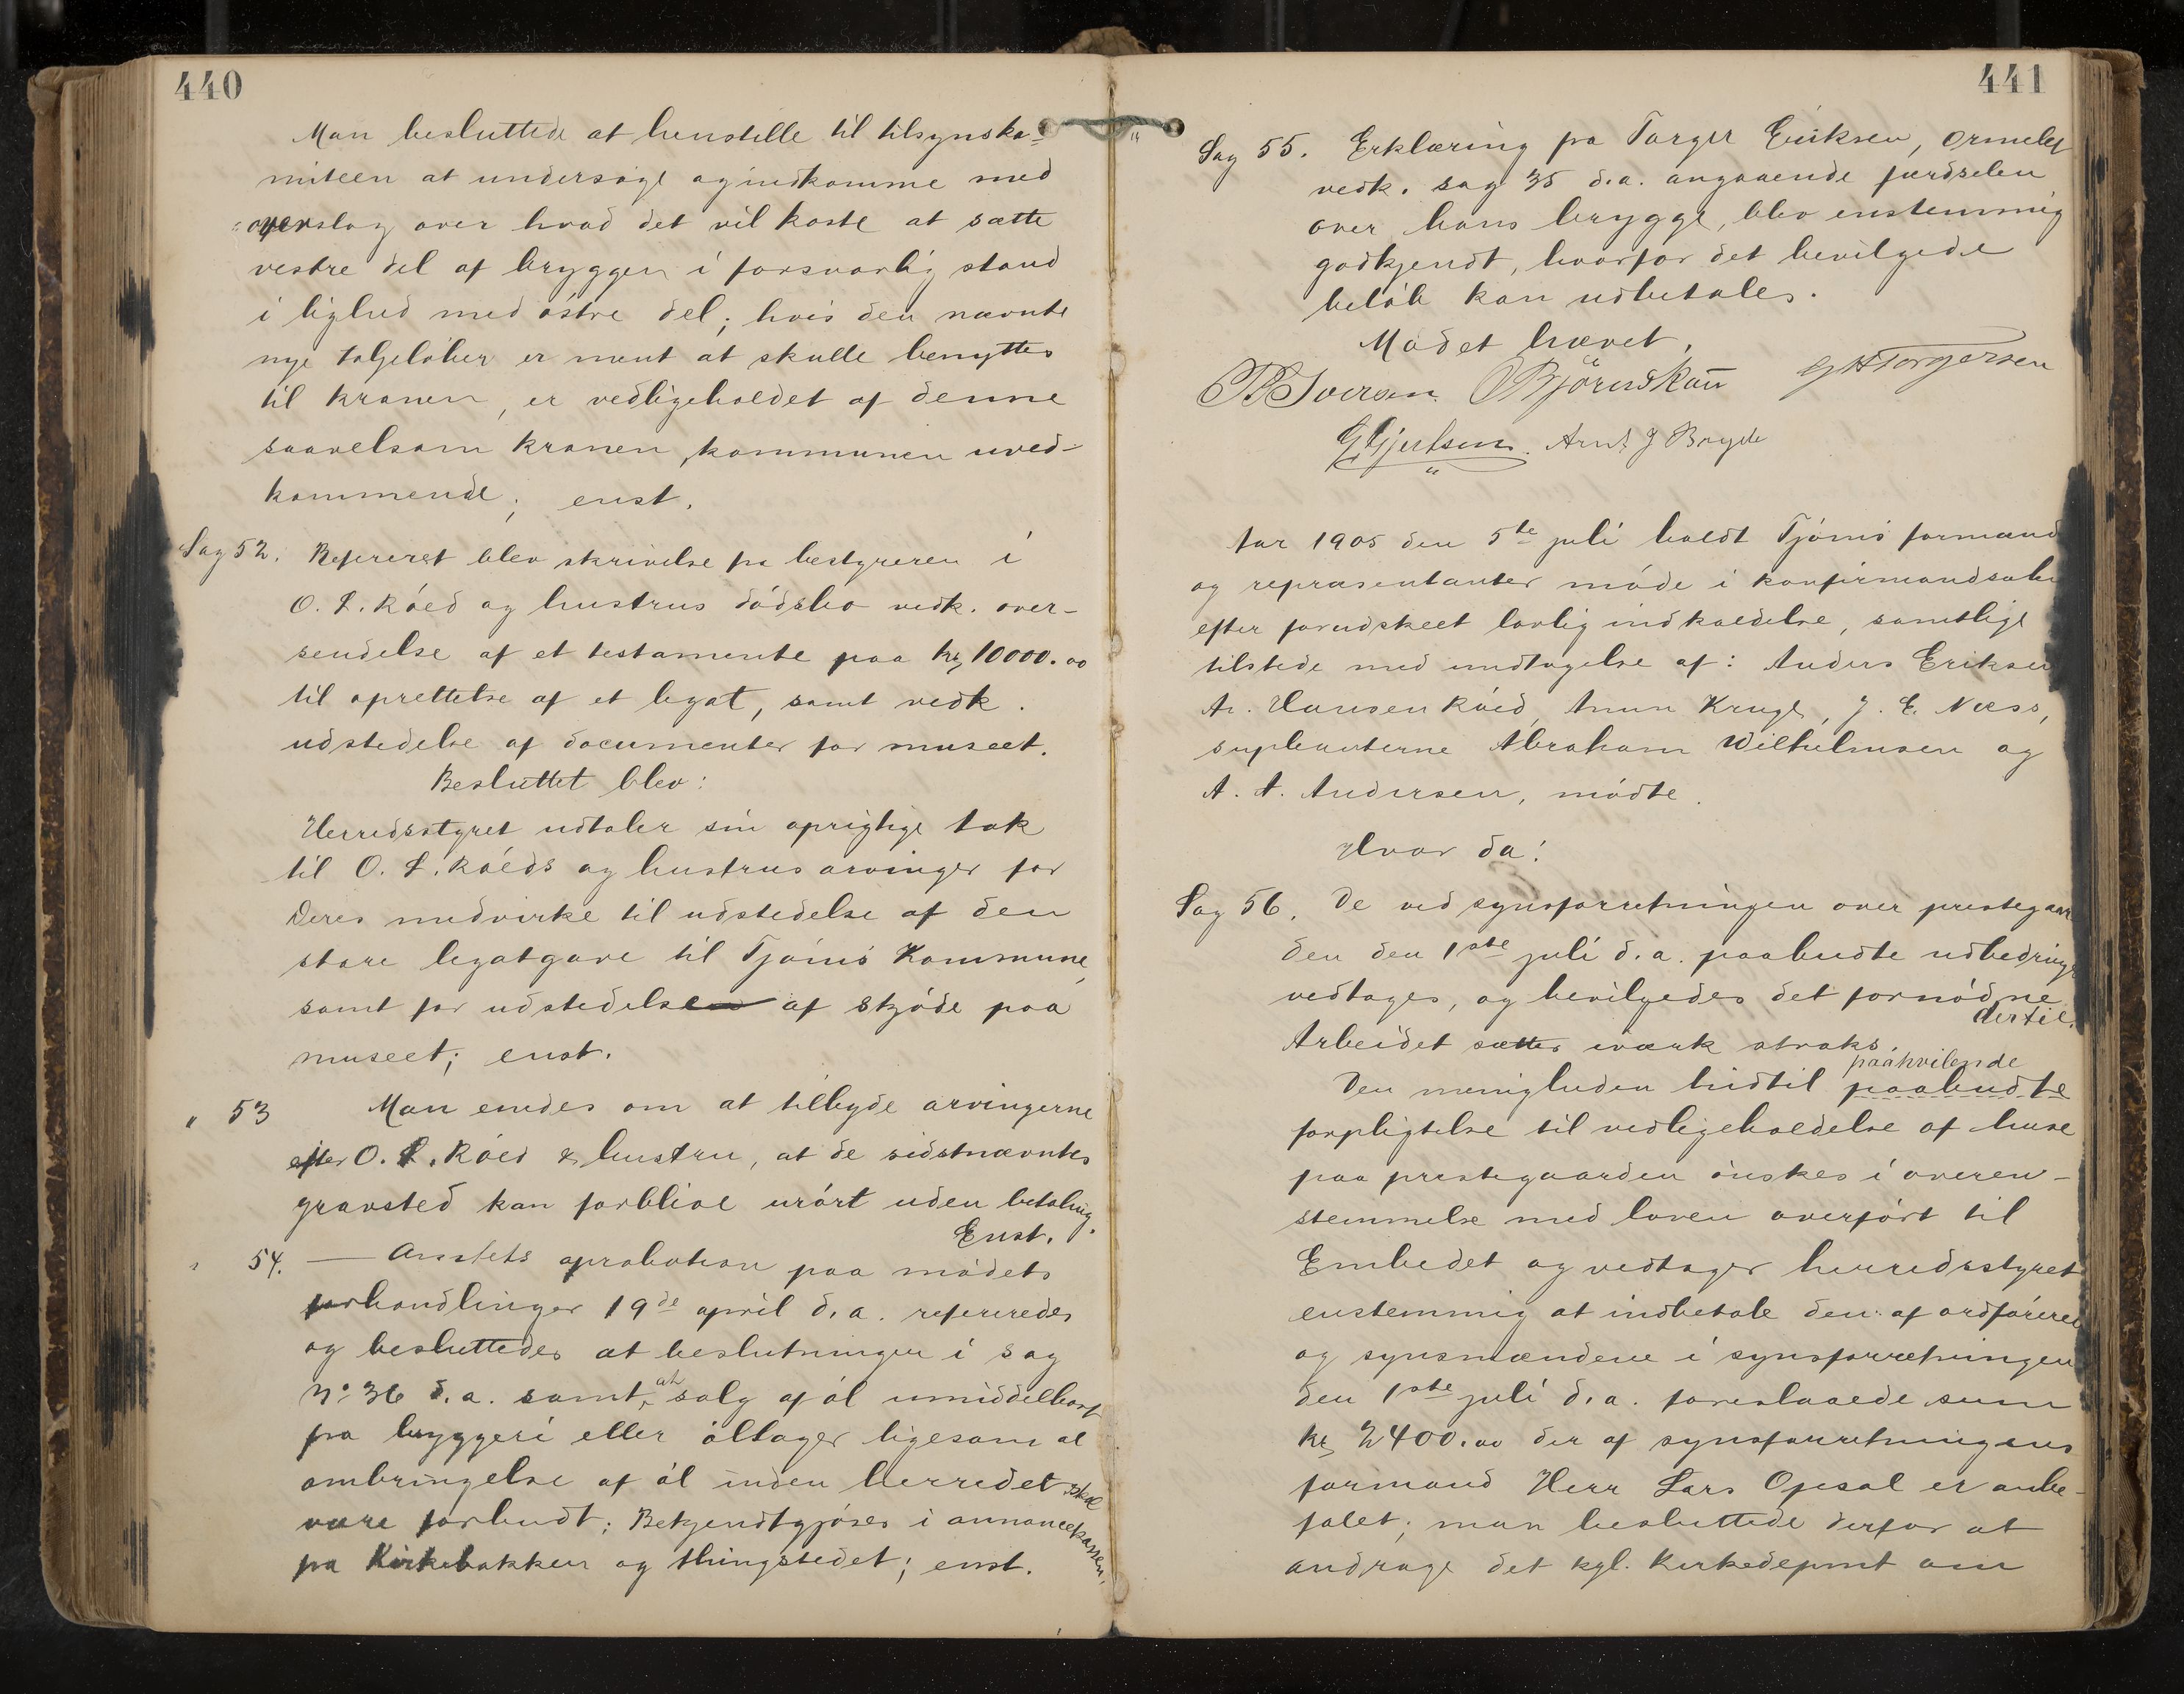 440
Man besluttede at henstille til tilsynsko-
miteen at undersøge og indkomme med
overslag over hvad det vil koste at sætte
vestre del af bryggen i forsvarlig stand
i lighed med østre del; hvis den nævnte
nye taljeløber er ment at skulle benyttes
til kranen, er vedligeholdet af denne
saavelsom kranen, kommunen uved-
kommende; enst.
Sag 52. Refereret blev skrivelse fra bestyreren i
O. L. Røed og hustrus dødsbo vedk. over-
sendelse af et testamente paa kr 10000.00
til oprettelse af et legat, samt vedk.
udstedelse af documenter for museet.
Besluttet blev:
Herredsstyret udtaler sin oprigtige tak
til O. L. Røeds og hustrus arvinger for
Deres medvirke til udstedelse af den
store legatgave til Tjømø Kommune,
samt for udstedelse af skjøde paa
museet; enst.
" 53 Man enedes om at tilbyde arvingerne
efter O. L. Røed & hustru, at de sidstnævntes
gravsted kan forblive urørt uden betaling.
Enst.
" 54. — Amtets aprobation paa mødets
forhandlinger 19de april d.a. refereredes
og besluttedes at beslutningen i sag
No 36 d.a. samt, at salg af øl umiddelbart
fra bryggeri eller øllager ligesom al
ombringelse af øl inden herredet skal
være forbudt; Bekjendtgjøres i annoncekassen,
pa Kirkebakken og thingstedet; enst.
441
Sag 55. Erklæring fra Torger Eriksen, Ormelet
vedk. sag 35 d.a. angaaende færdselen
over hans brygge, blev enstemmig
godkjendt, hvorfor det bevilgede
beløb kan udbetales.
Mødet hævet.
B Iversen O Bjørnskau G H Torgersen
G Gjertsen. Arnt J Bryde
Aar 1905 den 5te juli holdt Tjømø formænd
og repræsentanter møde i konfirmandsalen
efter forudskeet lovlig indkaldelse, samtlige
tilstede med undtagelse af: Anders Eriksen
A. Hansen Røed, Anun Kruge, J. E. Næss,
supleanterne Abraham Wilhelmsen og
A. A. Andersen, mødte.
Hvor da:
Sag 56. De ved synsforretningen over prestegaar
den den 1ste juli d.a. paabudte udbedringer
vedtages, og bevilgedes det fornødne
dertil.
Arbeidet sættes iværk straks.
paahvilende
Den menigheden hidtil paabudte
forpligtelse til vedligeholdelse af huse
paa prestegaarden ønskes i overen-
stemmelse med loven overført til
Embedet og vedtager herredsstyret
enstemmig at indbetale den af ordføreren
og synsmændene i synsforretningen
den 1ste juli d.a. foreslaaede sum
kr 2400.00 der af synsforretningens
formand Herr Lars Opsal er anbe-
falet; man besluttede derfor at
andrage det kgl. Kirkedepmt om